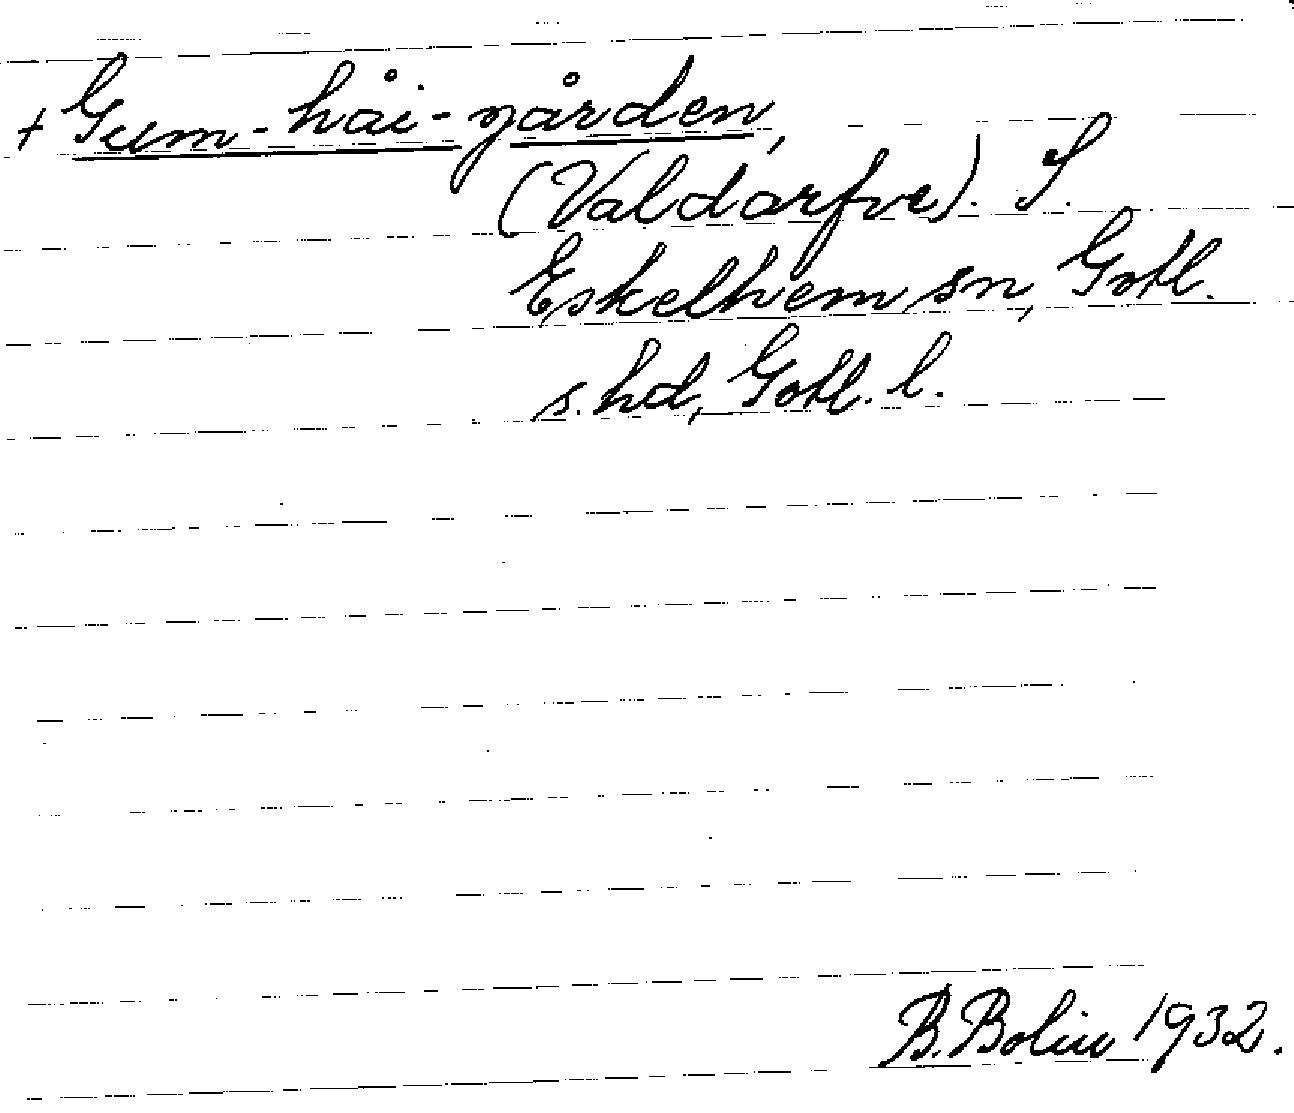 + Gum-håi-gården,
(Valdarfve). S.
Eskelhem sn, Gotl.
s. hd, Gotl. l.
B. Bolin 1932.